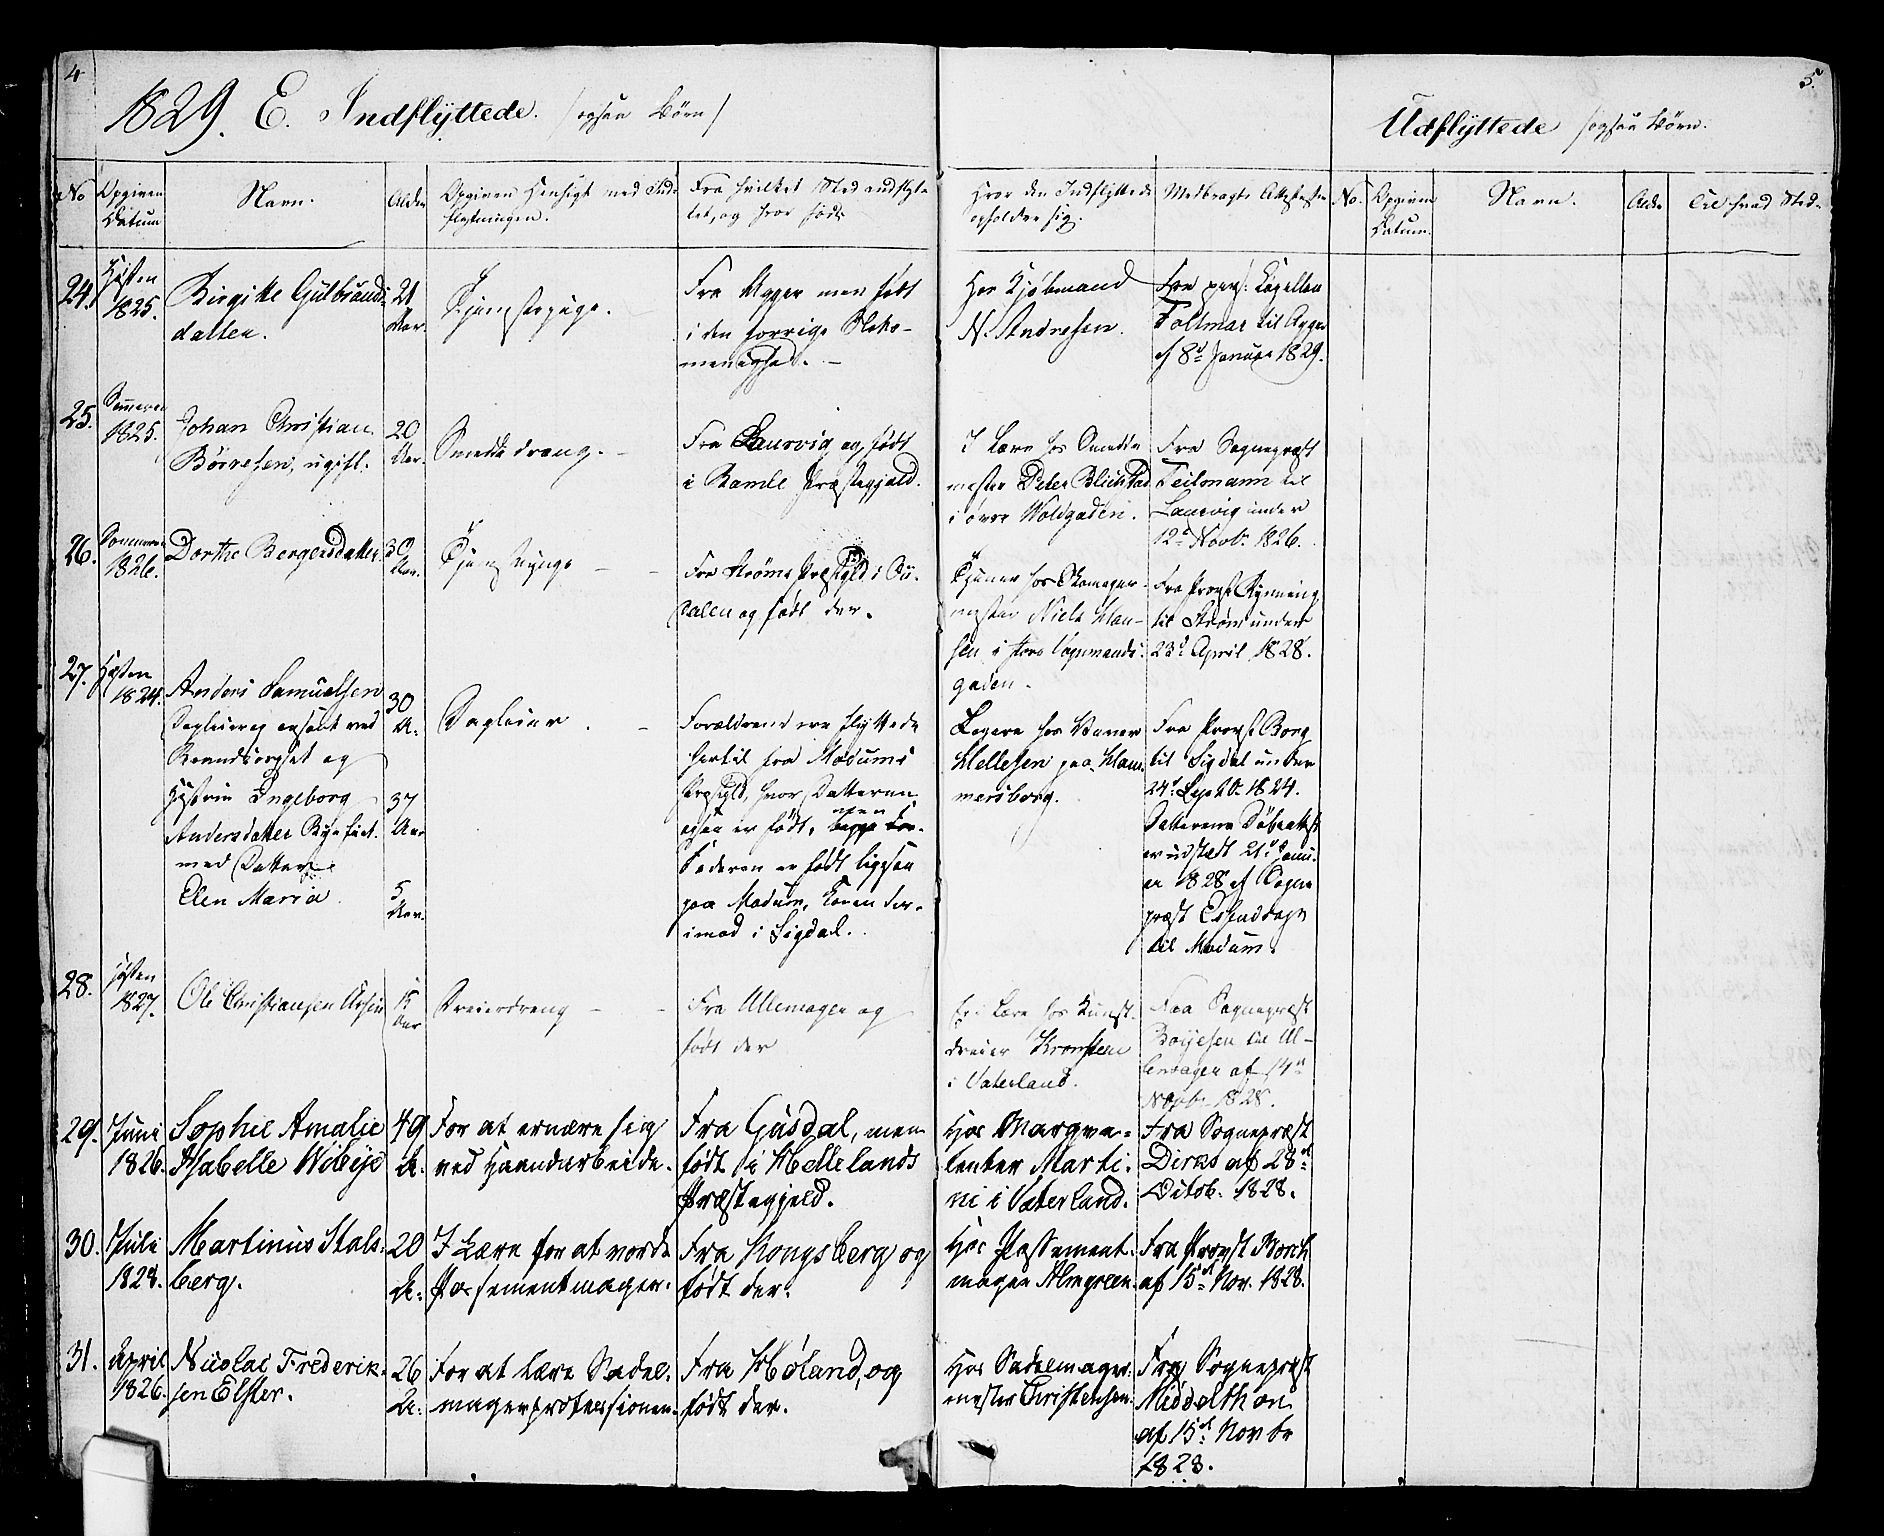 4
1829. E. Indflyttede. /ogsaa Børn/
No
Opgiven
Datum
Navn.
Alder
Opgiven Hensigt med Ind-
flytningen.
Fra hvilket Sted indflyt-
tet, og hvor født
Hvor den Indflyttede
opholder sig.
Medbragte Attester
24.
Høsten
1825.
Birgitte Gulbrands-
datter.
21
Aar.
Tjenestepige.
Fra Agger men født
i den forrige
menighed. -
Hos Kjøbmand
N. Andresen.
Fra pers: Capellan
Tollmar til Agger
af 8d Januar 1829.
25.
Sommeren
1825.
Johan Christian
Børresen, ugift.
20
Aar.
Smeddedreng. -
Fra Laurvig og født
i Bamle Præstegjeld.
I Lære hos Smedde-
mester Peter Blichstad
i øvre Woldgaden.
Fra Sognepræst
Teilmann til
Laurvig under
12d Novbr. 1826.
26.
Sommeren
1826.
Dorthe Bergersdatter
30
Aar.
Tjenestepige - -
Fra Strøms Præstgjld i Ou-
dalen og født der.
Tjener hos Skomager-
mester Niels Han-
sen i store Vognmands-
gaden.
Fra Provst Rynning
til Strøm under
23d April 1828.
27.
Høsten
1824.
Anders Samuelsen
Dagleier og ansadt ved
Brandcorpset og
Hustrue Ingeborg
Andersdatter
med Datter
Elen Maria.
30
A.
37
Aar
5
Aar.
Dagleier. -
Forældrene ere flyttede
hertil fra Modums
Præstgjld, hvor Datteren
ogsaa er født, men
Faderen er født ligesaa
paa Modum, Konen der-
imod i Sigdal.
Logere hos
Hellesen paa Ham-
mersborg.
Fra Provst Borg
til Sigdal under
24d Septbr. 1824.
Datterens Døbeattest
er udstædt 21d Janu-
ar 1828 af Sogne-
præst
til Modum.
28.
Høsten
1827.
Ole Christiansen
15
Aar
Dreierdreng - -
Fra Ullensager og
født der
Er i Lære hos Kunst-
dreier Kronsteen
i Vaterland.
Fra Sognepræst
Boijesen til Ul-
lensager af 14d
Novbr. 1828.
29.
Juni
1826.
Sophie Amalie
Isabelle Wibije
49
A.
For at ernære sig
ved Haandarbeide.
Fra Gusdal, men
født i Hellelands
Præstegjeld.
Hos Margva-
lenter Marti-
ni i Vaterland.
Fra Sognepræst
Dirks af 28d
Octob. 1828.
30.
Juli
1828.
Martinus Stals-
berg.
20
A.
I Lære for at vorde
Possementmager.
Fra Kongsberg og
født der.
Hos Possement-
mager Almgreen.
Fra Provst Borch
af 15d Nov. 1828.
31.
April
1826.
Nicolai Frederik-
sen Elster.
26
A.
For at lære Sadel-
magerprofessionen.
Fra Høland, og
født der.
Hos Sadelmager-
mester Christensen.
Fra Sognepræst
Middelthon
af 15d Novbr
1828.
5.
Udflyttede /ogsaa Børn.
No.
Opgiven
Datum.
Navn.
Alder
Til hvad Sted.